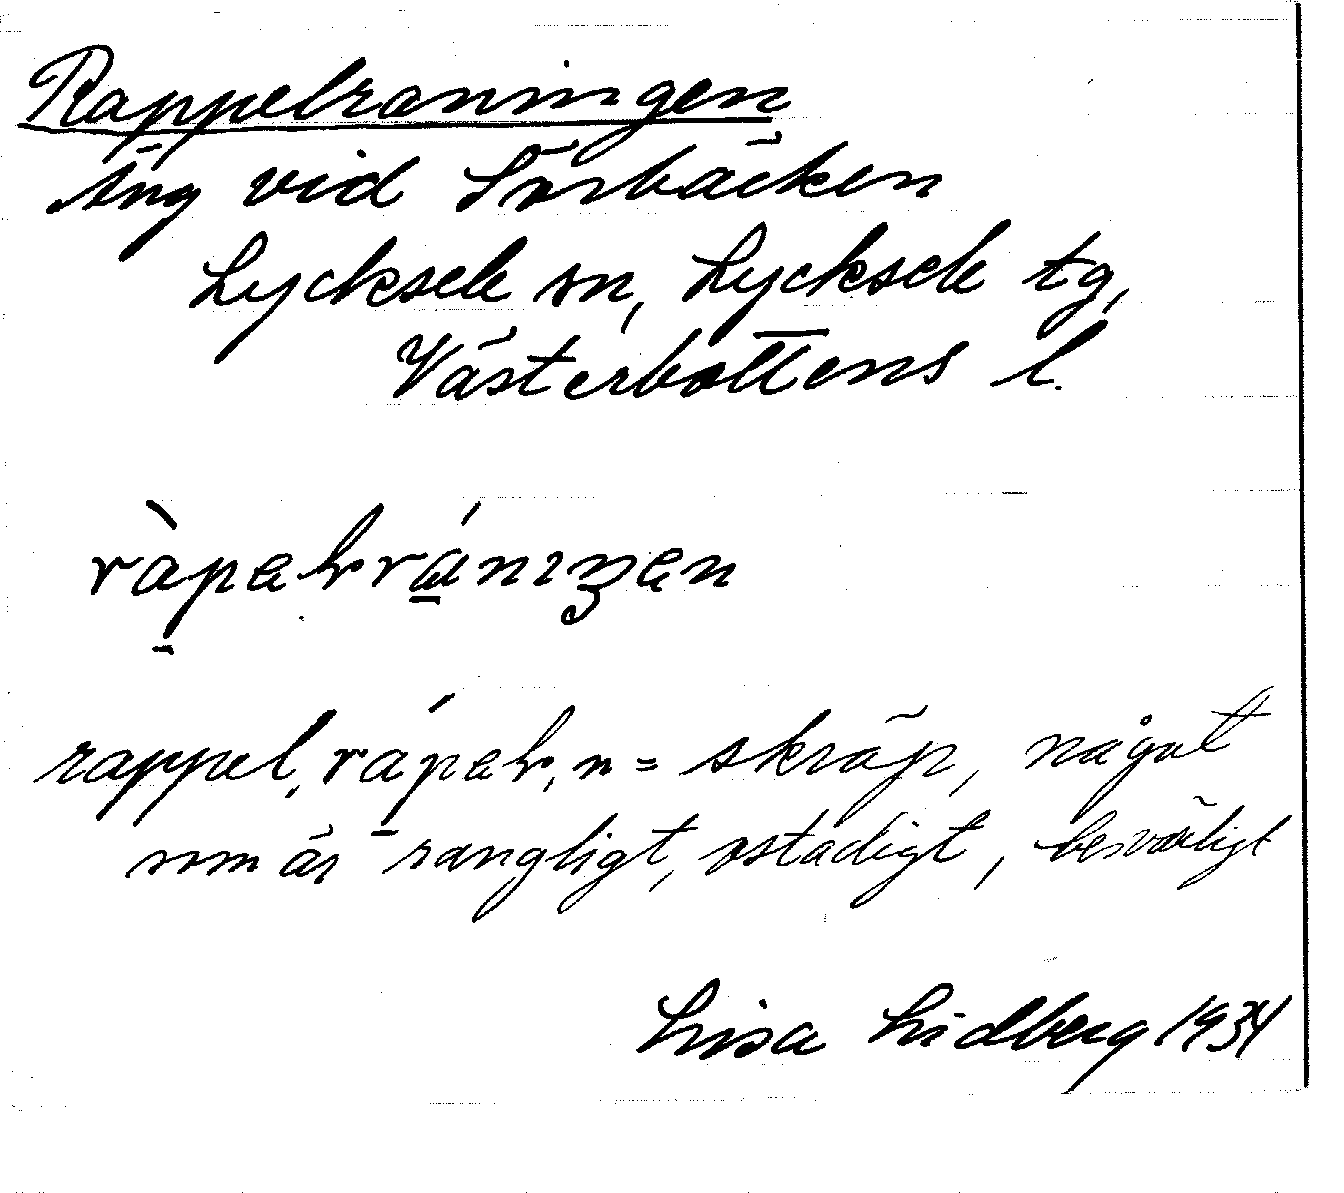 Rappelraningen
Äng vid Sörbäcken
Lycksele sn, Lycksele tg,
Västerbottens l.
rappel, n = skräp, något
som är rangligt, ostadigt, besvärligt
Lisa Lidberg 1934